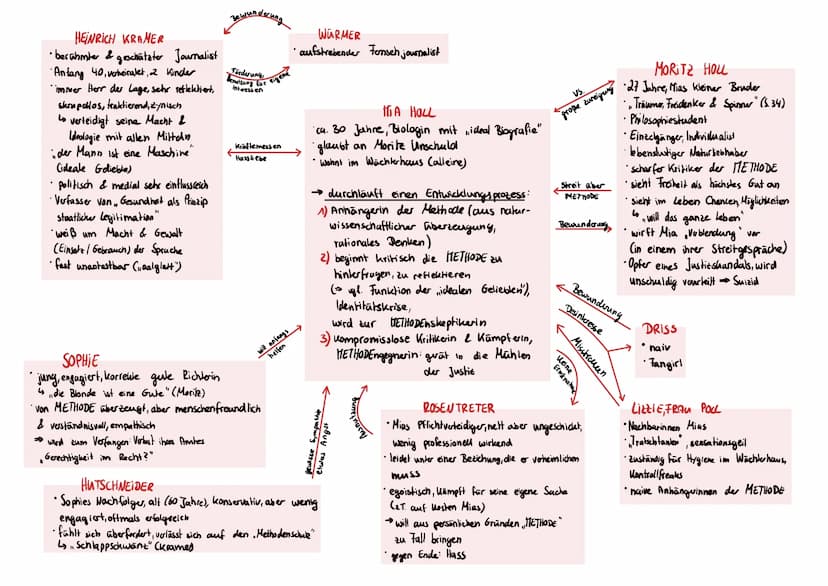 HEINRICH KRAMER
· berühmter & geschätzter Journalist
· Anfang 40, verheiratet, 2 Kinder
· immer Herr der Lage, sehr reflektiert,
skrupellos, taktierend, zynisch
↳ verteidigt seine Macht &
Ideologie mit allen Mitteln
· „der Mann ist eine Maschine"
(ideale Geliebte)
· politisch & medial sehr einflussreich
· Verfasser von „Gesundheit als Prinzip
staatlicher Legitimation"
· weiß um Macht & Gewalt
(Einsatz/Gebrauch) der Sprache
· fast unantastbar („aalglatt")
Bewunderung
Förderung,
für eigene
Interessen
WÜRMER
· aufstrebender Fernsehjournalist
Kräftemessen
Hassliebe
MIA HOLL
· ca. 30 Jahre, Biologin mit „ideal Biografie"
· glaubt an Moritz Unschuld
· wohnt im Wächterhaus (alleine)
→ durchläuft einen Entwicklungsprozess:
1) Anhängerin der Methode (aus natur-
wissenschaftlicher Überzeugung,
rationales Denken)
2) beginnt kritisch die METHODE zu
hinterfragen, zu reflektieren
(→ vgl. Funktion der „idealen Geliebten"),
Identitätskrise,
wird zur METHODENskeptikerin
3) kompromisslose Kritikerin & Kämpferin,
METHODENgegnerin: gerät in die Mühlen
der Justiz
VS.
große Zuneigung
Streit über
METHODE
Bewunderung
MORITZ HOLL
· 27 Jahre, Mias kleiner Bruder
· „Träumer, Freidenker & Spinner" (S.34)
· Philosophiestudent
· Einzelgänger, Individualist
· lebenslustiger Naturliebhaber
· scharfer Kritiker der METHODE
· sieht Freiheit als höchstes Gut an
· sieht im Leben Chancen, Möglichkeiten
↳ „will das ganze Leben"
· wirft Mia „Verblendung" vor
(in einem ihrer Streitgespräche)
· Opfer eines Justizskandals, wird
unschuldig verurteilt → Suizid
Bewunderung
Mitleid
keine
DRISS
· naiv
· Fangirl
LIZZIE, FRAU POLL
· Nachbarinnen Mias
· „Tratschtanten", sensationsgeil
· zuständig für Hygiene im Wächterhaus,
Kontrollfreaks
· naive Anhängerinnen der METHODE
SOPHIE
· jung, engagiert, korrekte gute Richterin
↳ „die Blonde ist eine Gute" (Moritz)
· von METHODE überzeugt, aber menschenfreundlich
& verständnisvoll, empathisch
→ wird zum Verfangen Verbot ihres Amtes
„Gerechtigkeit im Recht?"
will anfangs
helfen
Sympathie
etwas Angst
HUTSCHNEIDER
· Sophies Nachfolger, alt (60 Jahre), konservativ, aber wenig
engagiert, oftmals erfolgreich
· fühlt sich überfordert, verlässt sich auf den „Methodenschutz"
↳ „Schlappschwanz" (Kramer)
ROSENTRETER
· Mias Pflichtverteidiger, nett aber ungeschickt,
wenig professionell wirkend
· leidet unter einer Beziehung, die er verheimlichen
muss
· egoistisch, kämpft für seine eigene Sache
(z.T. auf Kosten Mias)
→ will aus persönlichen Gründen „METHODE"
zu Fall bringen
· gegen Ende: Hass